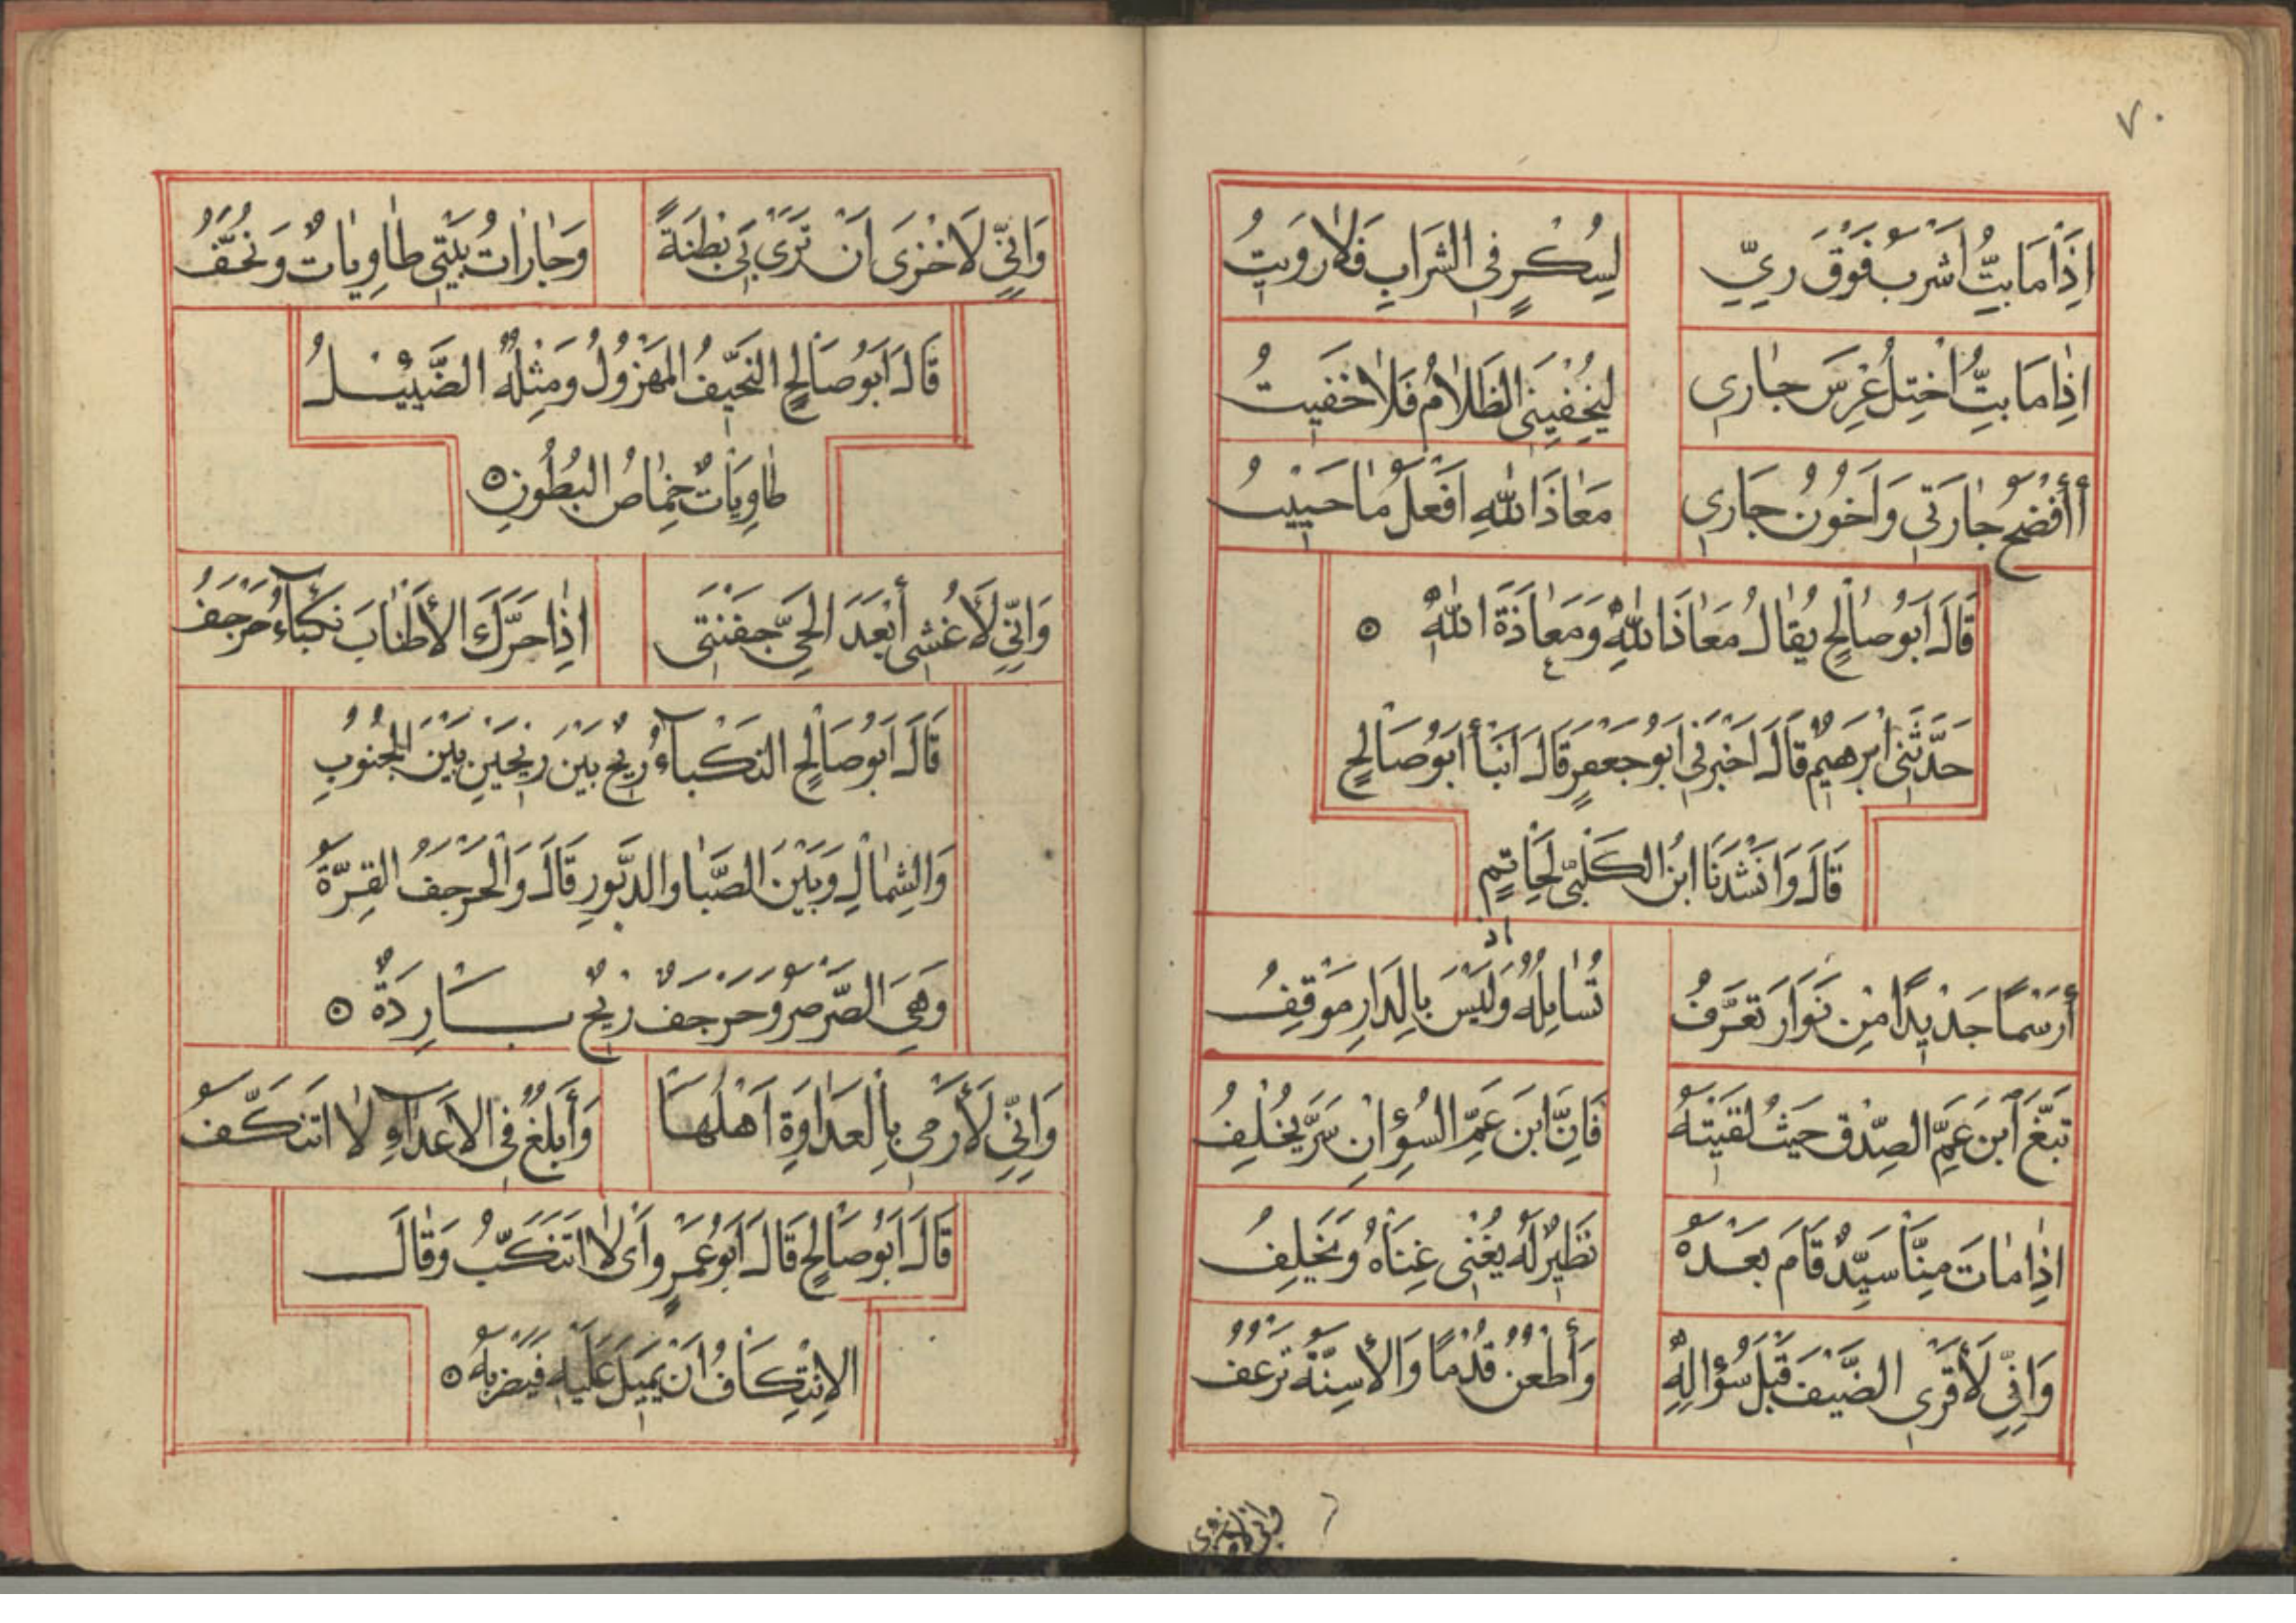 ٧٠
إِذَا مَا بِتُّ أَشْرَبُ فَوْقَ رِيٍّ لِسُكْرٍ فِي الشَّرَابِ فَلَا رَوِيتُ
إِذَا مَا بِتُّ أَخْتِلُ عِرْسَ جَارِي لِيُخْفِيَنِي الظَّلَامُ فَلَا خَفِيتُ
أَأَفْضَحُ جَارَتِي وَأَخُونُ جَارِي مَعَاذَ اللهِ أَفْعَلُ مَا حَيِيتُ
قَالَ أَبُو صَالِحٍ يُقَالُ مَعَاذَ اللهِ وَمَعَاذَةَ اللهِ ۝
حَدَّثَنِي إِبْرَهِيمُ قَالَ أَخْبَرَنِي أَبُو جَعْفَرٍ قَالَ أَنْبَأَ أَبُو صَالِحٍ
قَالَ وَأَنْشَدَنَا ابْنُ الْكَلْبِيِّ لِحَاتِمٍ
أَرَسْمًا جَدِيدًا مِنْ نَوَارَ تَعَرَّفُ تُسَائِلُهُ وَلَيْسَ بِالدَّارِ مَوْقِفُ
اذ
تَبَغَّ ابْنَ عَمِّ الصِّدْقِ حَيْثُ لَقِيتَهُ فَإِنَّ ابْنَ عَمِّ السُّوءِ إِنْ سَرَّ يُخْلِفُ
إِذَا مَاتَ مِنَّا سَيِّدٌ قَامَ بَعْدَهُ نَظِيرٌ لَهُ يُغْنِي غِنَاهُ وَيَخْلِفُ
وَإِنِّي لَأَقْرِي الضَّيْفَ قَبْلَ سُؤَالِهِ وَأَطْعُنُ قُدْمًا وَالْأَسِنَّةُ تَرْعُفُ
وَإِنِّي لَأَخْزَى
وَإِنِّي لَأَخْزَى أَنْ تُرَى بِي بِطْنَةٌ وَجَارَاتُ بَيْتِي طَاوِيَاتٌ وَنُحَّفُ
قَالَ أَبُو صَالِحٍ النَّحِيفُ الْمَهْزُولُ وَمِثْلُهُ الضَّئِيلُ
طَاوِيَاتٌ خِمَاصُ الْبُطُونِ ۝
وَإِنِّي لَأُغْشِي أَبْعَدَ الْحَيِّ جَفْنَتِي إِذَا حَرَّكَ الْأَطْنَابَ نَكْبَاءُ حَرْجَفُ
قَالَ أَبُو صَالِحٍ النَّكْبَاءُ رِيحٌ بَيْنَ رِيحَيْنِ بَيْنَ الْجَنُوبِ
وَالشِّمَالِ وَبَيْنَ الصَّبَا وَالدَّبُورِ قَالَ وَالْحَرْجَفُ الْقِرَّةُ
وَهِيَ الصَّرْصَرُ وَحَرْجَفٌ رِيحٌ بَارِدَةٌ ۝
وَإِنِّي لَأَرْمِي بِالْعَدَاوَةِ أَهْلَهَا وَأَبْلُغُ فِي الْأَعْدَاءِ لَا أَتَنَكَّفُ
قَالَ أَبُو صَالِحٍ قَالَ أَبُو عَمْرٍو أَيْ لَا أَتَنَكَّبُ وَقَالَ
الِانْتِكَافُ أَنْ يَمِيلَ عَلَيْهِ فَيَضْرِبَهُ ۝